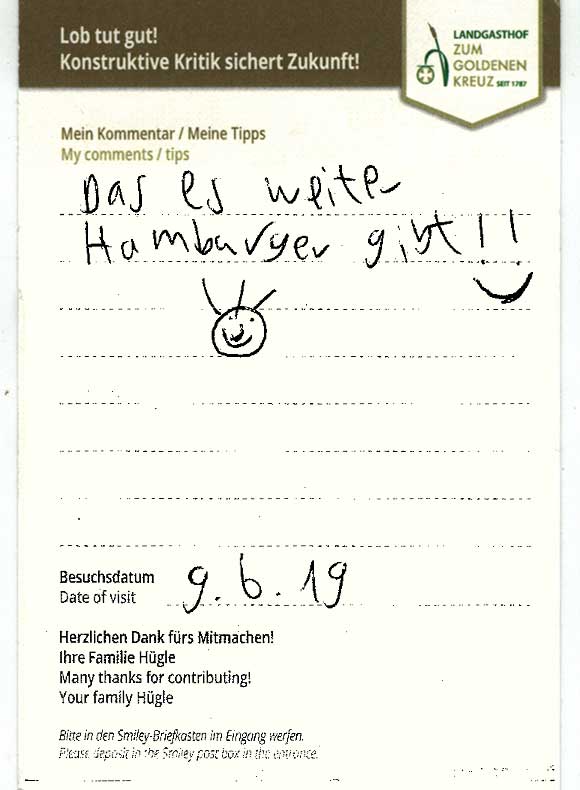 Lob tut gut!
Konstruktive Kritik sichert Zukunft!
LANDGASTHOF
ZUM
GOLDENEN
KREUZ SEIT 1787
Mein Kommentar / Meine Tipps
My comments / tips
Das es weiter
Hamburger gibt!!
Besuchsdatum
Date of visit
9.6.19
Herzlichen Dank fürs Mitmachen!
Ihre Familie Hügle
Many thanks for contributing!
Your family Hügle
Bitte in den Smiley-Briefkasten im Eingang werfen.
Please deposit in the Smiley post box in the entrance.